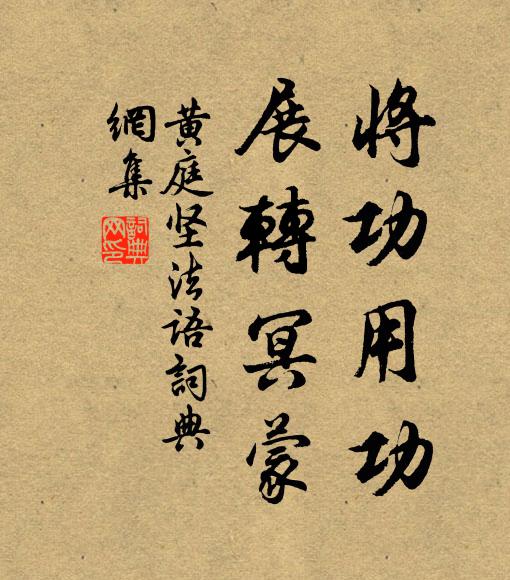 將功用功
展轉冥蒙
黄庭坚法语詞典
網集
詞典网印